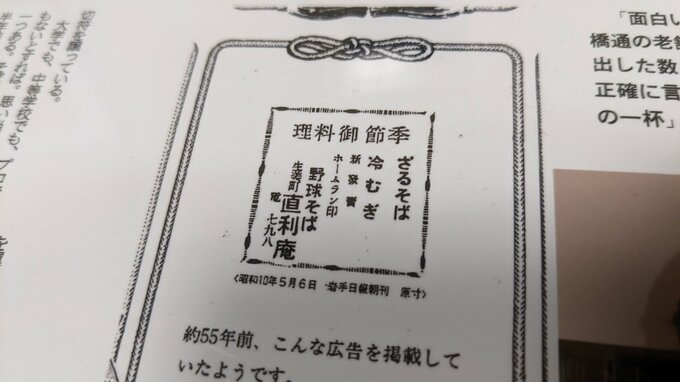 切符を譲っている。
大学でも、中等学校でも、
もないとすれば。
一つある。
「面白い
橋通の老舗
出した数
正確に言
の一杯」
理料御節季
ざるそば
冷むぎ
新發賣
ホームラン印
野球そば
生姜町 直利庵
電 七九八
〈昭和10年5月6日 岩手日報朝刊 原寸〉
約55年前、こんな広告を掲載して
いたようです。